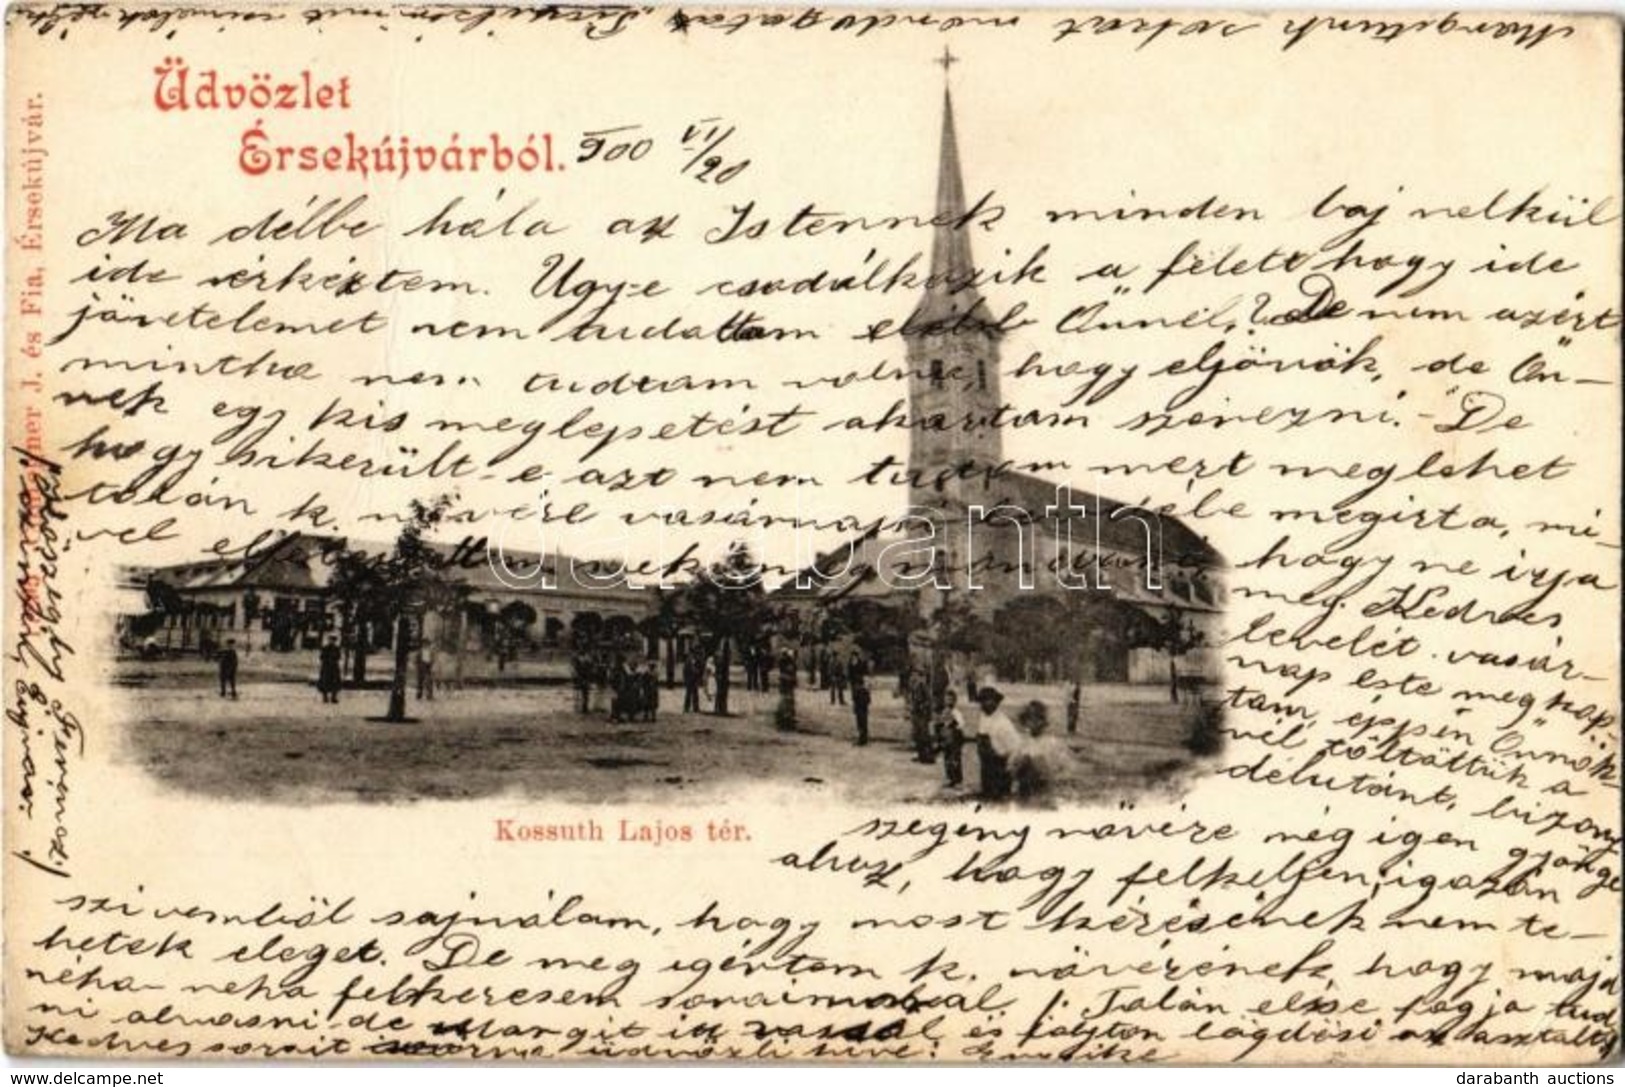 Üdvözlet
Érsekújvárból.
900 VI/20
Ma délbe hála az Istennek minden baj nélkül
ide érkéztem. Ugy-e csodálkozik a felett hogy ide
jövetelemet nem tudattam előbb Önnel? De nem azért
mintha nem tudtam volna, hogy eljövök, de Ön-
nek egy kis meglepetést akartam szerezni. - De
hogy sikerült-e azt nem tudom mert meglehet
talán k. nővére vasárnapi levelébe megirta, mi-
vel elfelejtettem nekün
hogy ne irja
meg. Kedves
levelét vasár-
nap este megkap-
tam, éppén Önnök-
nél töltöttük a
délutánt, bizony
szegény növére még igen gyönge
ahoz, hogy felkeljen, igazán
szivemböl sajnálom, hogy most kérésének nem te-
hetek eleget. De meg igértem k. növérének, hogy majd
néha-néha felkeresem soraimmal /: Talán elsse fogja tud
ni olvasni - de Margit itt és folyton lögdösi az asztalt :/
Kedves sorait üdvözli hive: Emike
Margitunk sokat mondogatta
Kossuth Lajos tér.
ner J. és Fia, Érsekújvár.
darabanth
darabanth auctions
https://www.delcampe.net